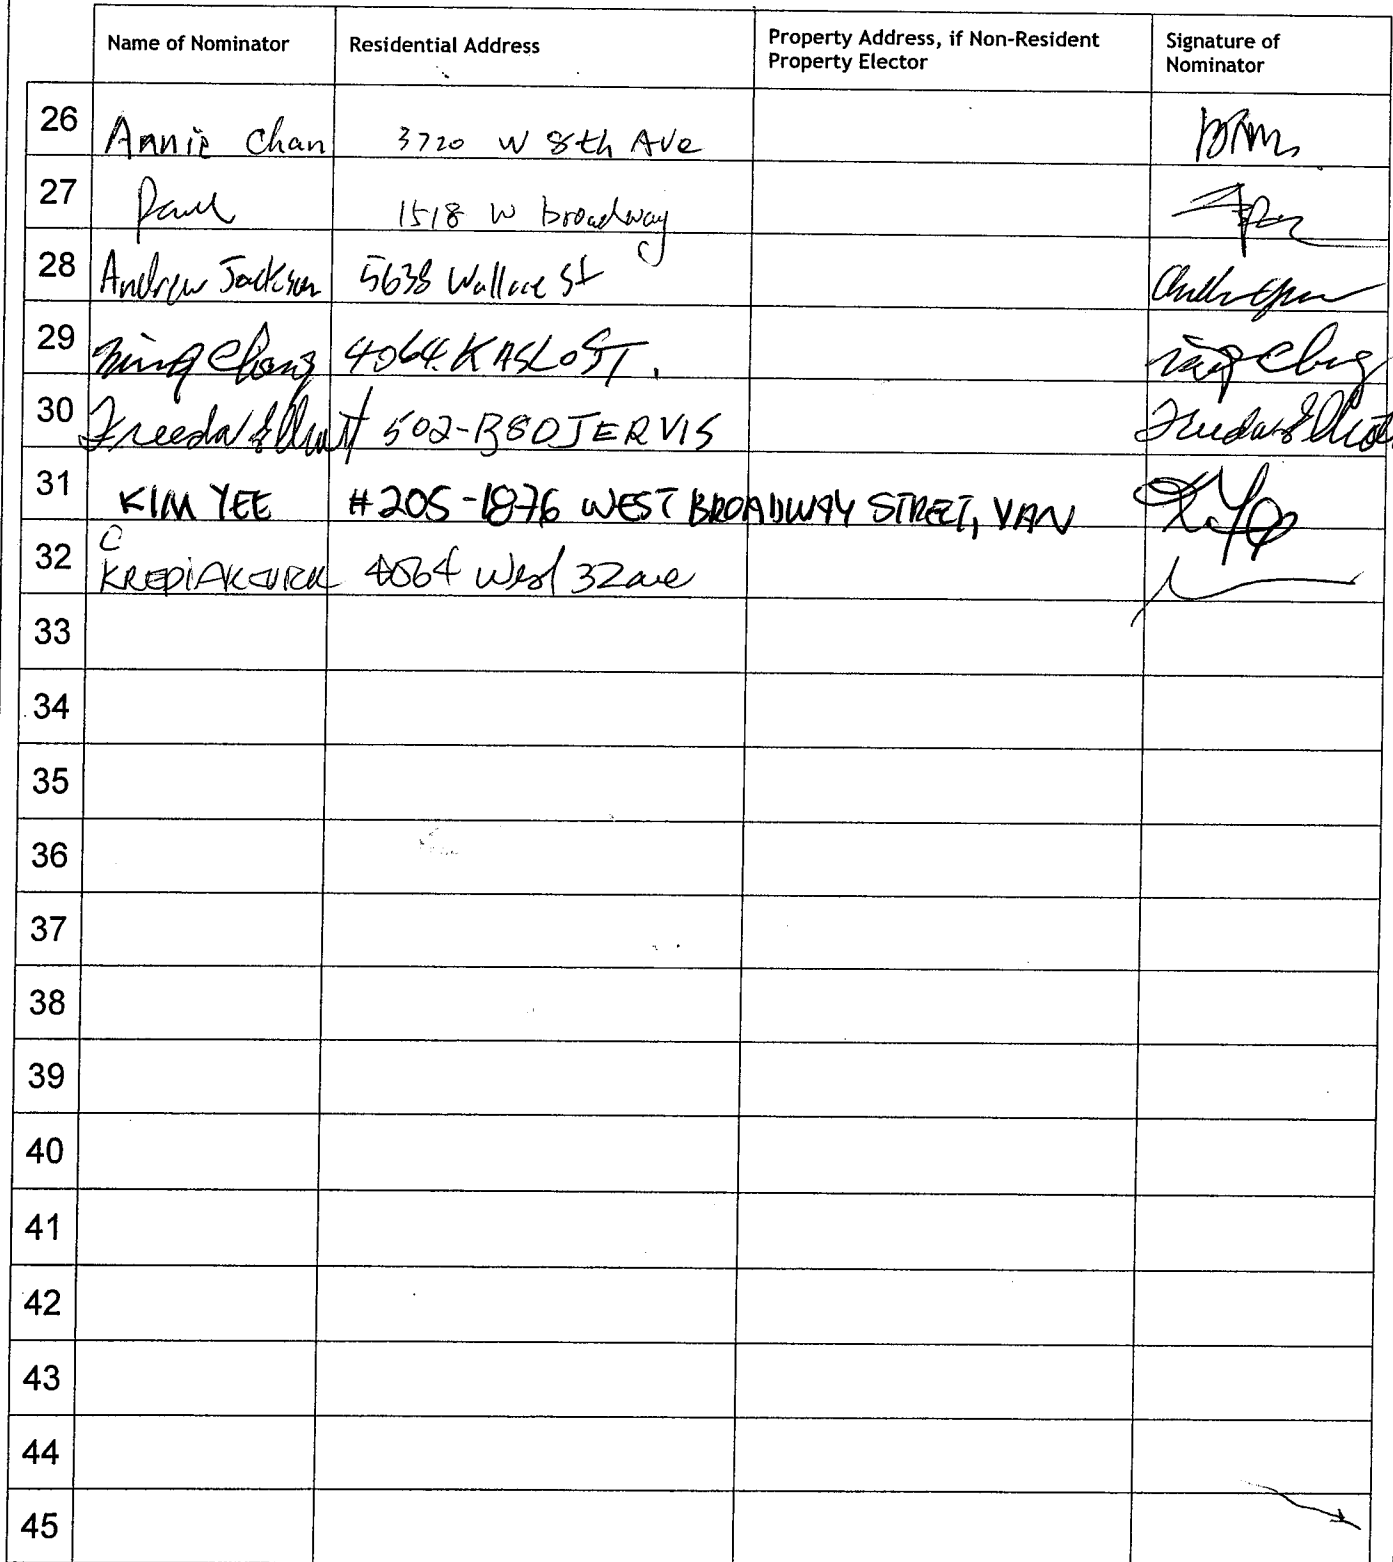 Name of Nominator Residential Address Property Address, if Non-Resident Property Elector Signature of Nominator
26 Annie Chan 3720 W 8th Ave
27 Paul 1518 W Broadway
28 Andrew Jackson 5638 Wallace St
29 Ming Chong 4064 KASLO ST.
30 Freeda Elliott 502- JERVIS
31 KIM YEE #205-1876 WEST BROADWAY STREET, VAN K Yee
32 C 4064 West 32 ave
33
34
35
36
37
38
39
40
41
42
43
44
45